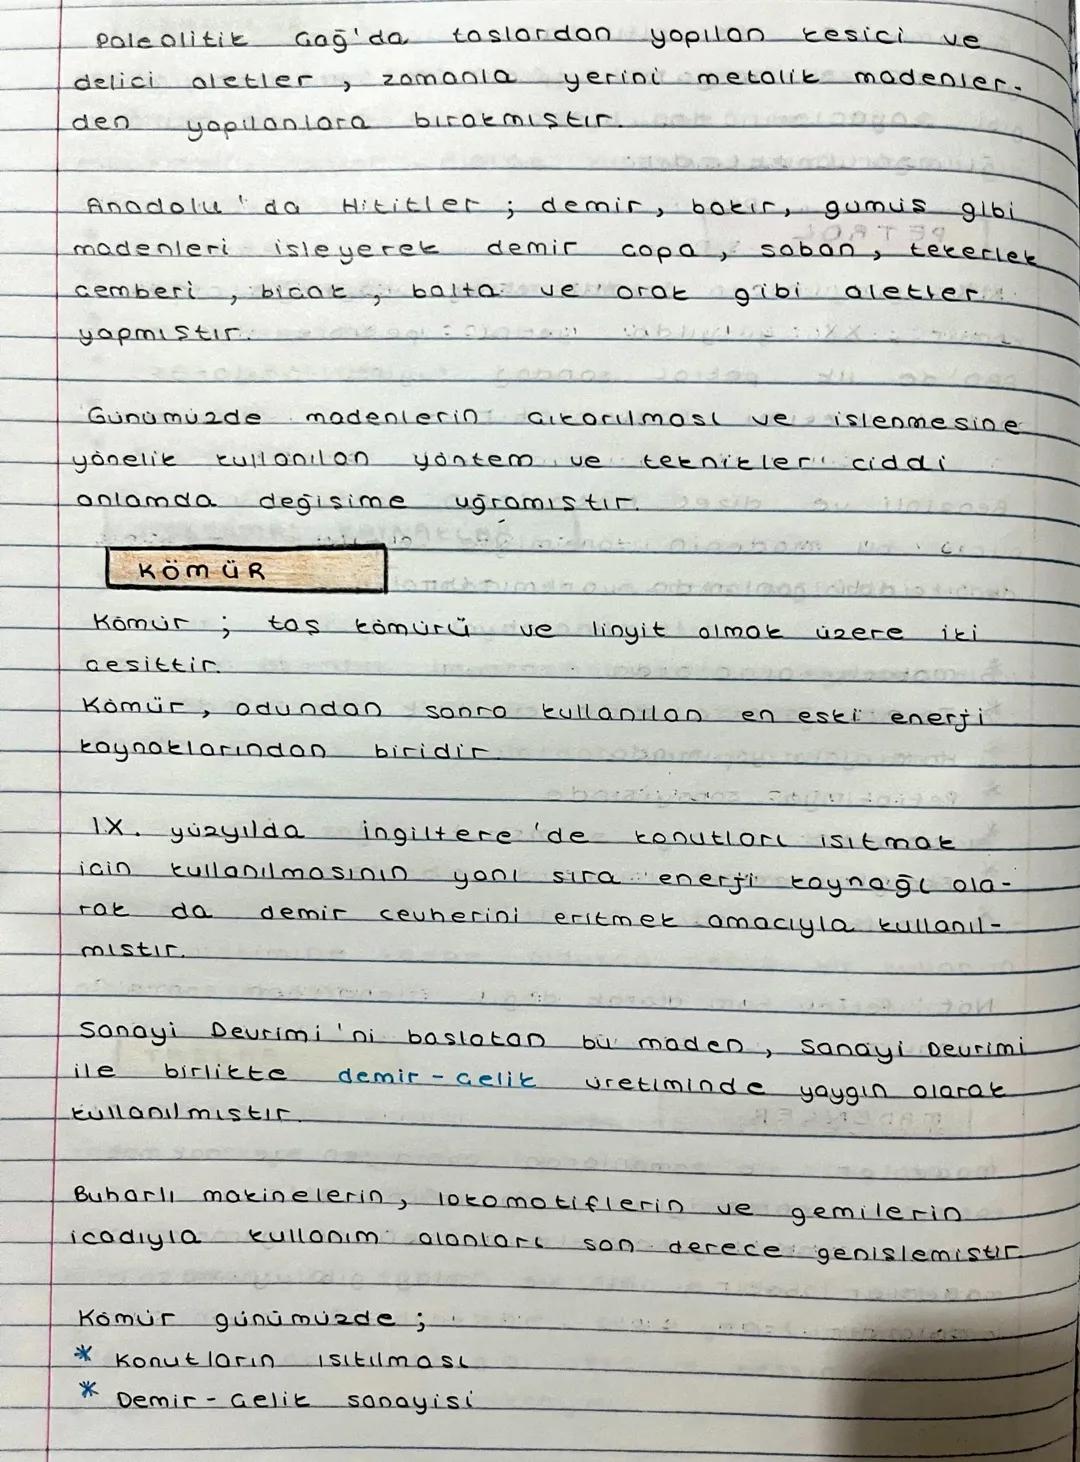 Paleolitik Çağ'da taslardan yapılan kesici ve
delici aletler, zamanla yerini metalik madenler-
den yapılanlara bırakmıştır.
Anadolu'da Hititler; demir, bakır, gumus gibi
madenleri isleyerek demir capa, saban, tekerlek
cemberi, bicak, balta ve orak gibi aletler
yapmıştır.
Günümüzde madenlerin cıkarılması ve islenmesine
yönelik kullanılan yöntem ve teknikler ciddi
anlamda değisime uğramıstır.
KÖMÜR
Kömür; taş kömürü ve linyit olmak üzere iki
cesittir.
Kömür, odundan sonra kullanılan en eski enerji
kaynaklarından biridir.
IX. yüzyılda ingiltere'de konutları ısıtmak
icin kullanılmasının yanı sıra enerji kaynağı ola-
rak da demir cevherini eritmek amacıyla kullanıl-
mıstır.
Sanayi Devrimi'ni baslatan bu maden, Sanayi Devrimi
ile birlikte demir-celik üretiminde yaygın olarak
kullanılmıstır.
Buharlı makinelerin, lokomotiflerin ve gemilerin
icadıyla kullanım alanları son derece genislemistir.
Kömür günümüzde;
* Konutların ısıtılması
* Demir-Celik sanayisi